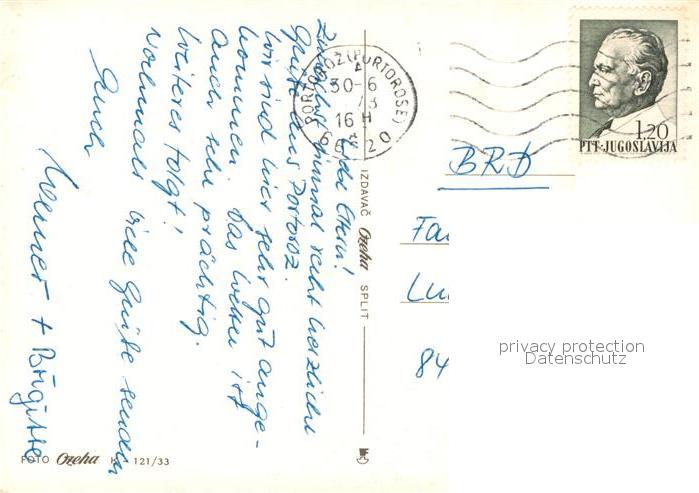 Liebe Eltern!
Zunächst einmal recht herzliche
Grüße aus Portoroz.
Wir sind hier sehr gut ange-
kommen. Das Wetter ist
auch sehr prächtig.
Weiteres folgt!
Nochmals viele Grüße senden
Euch
Werner + Brigitte
PORTOROŽ (PORTOROSE)
30-6
73
16 H
20
1,20
PTT-JUGOSLAVIJA
BRD
Fa
Lu
84
privacy protection
Datenschutz
IZDAVAČ Ozeha SPLIT
FOTO Ozeha 121/33